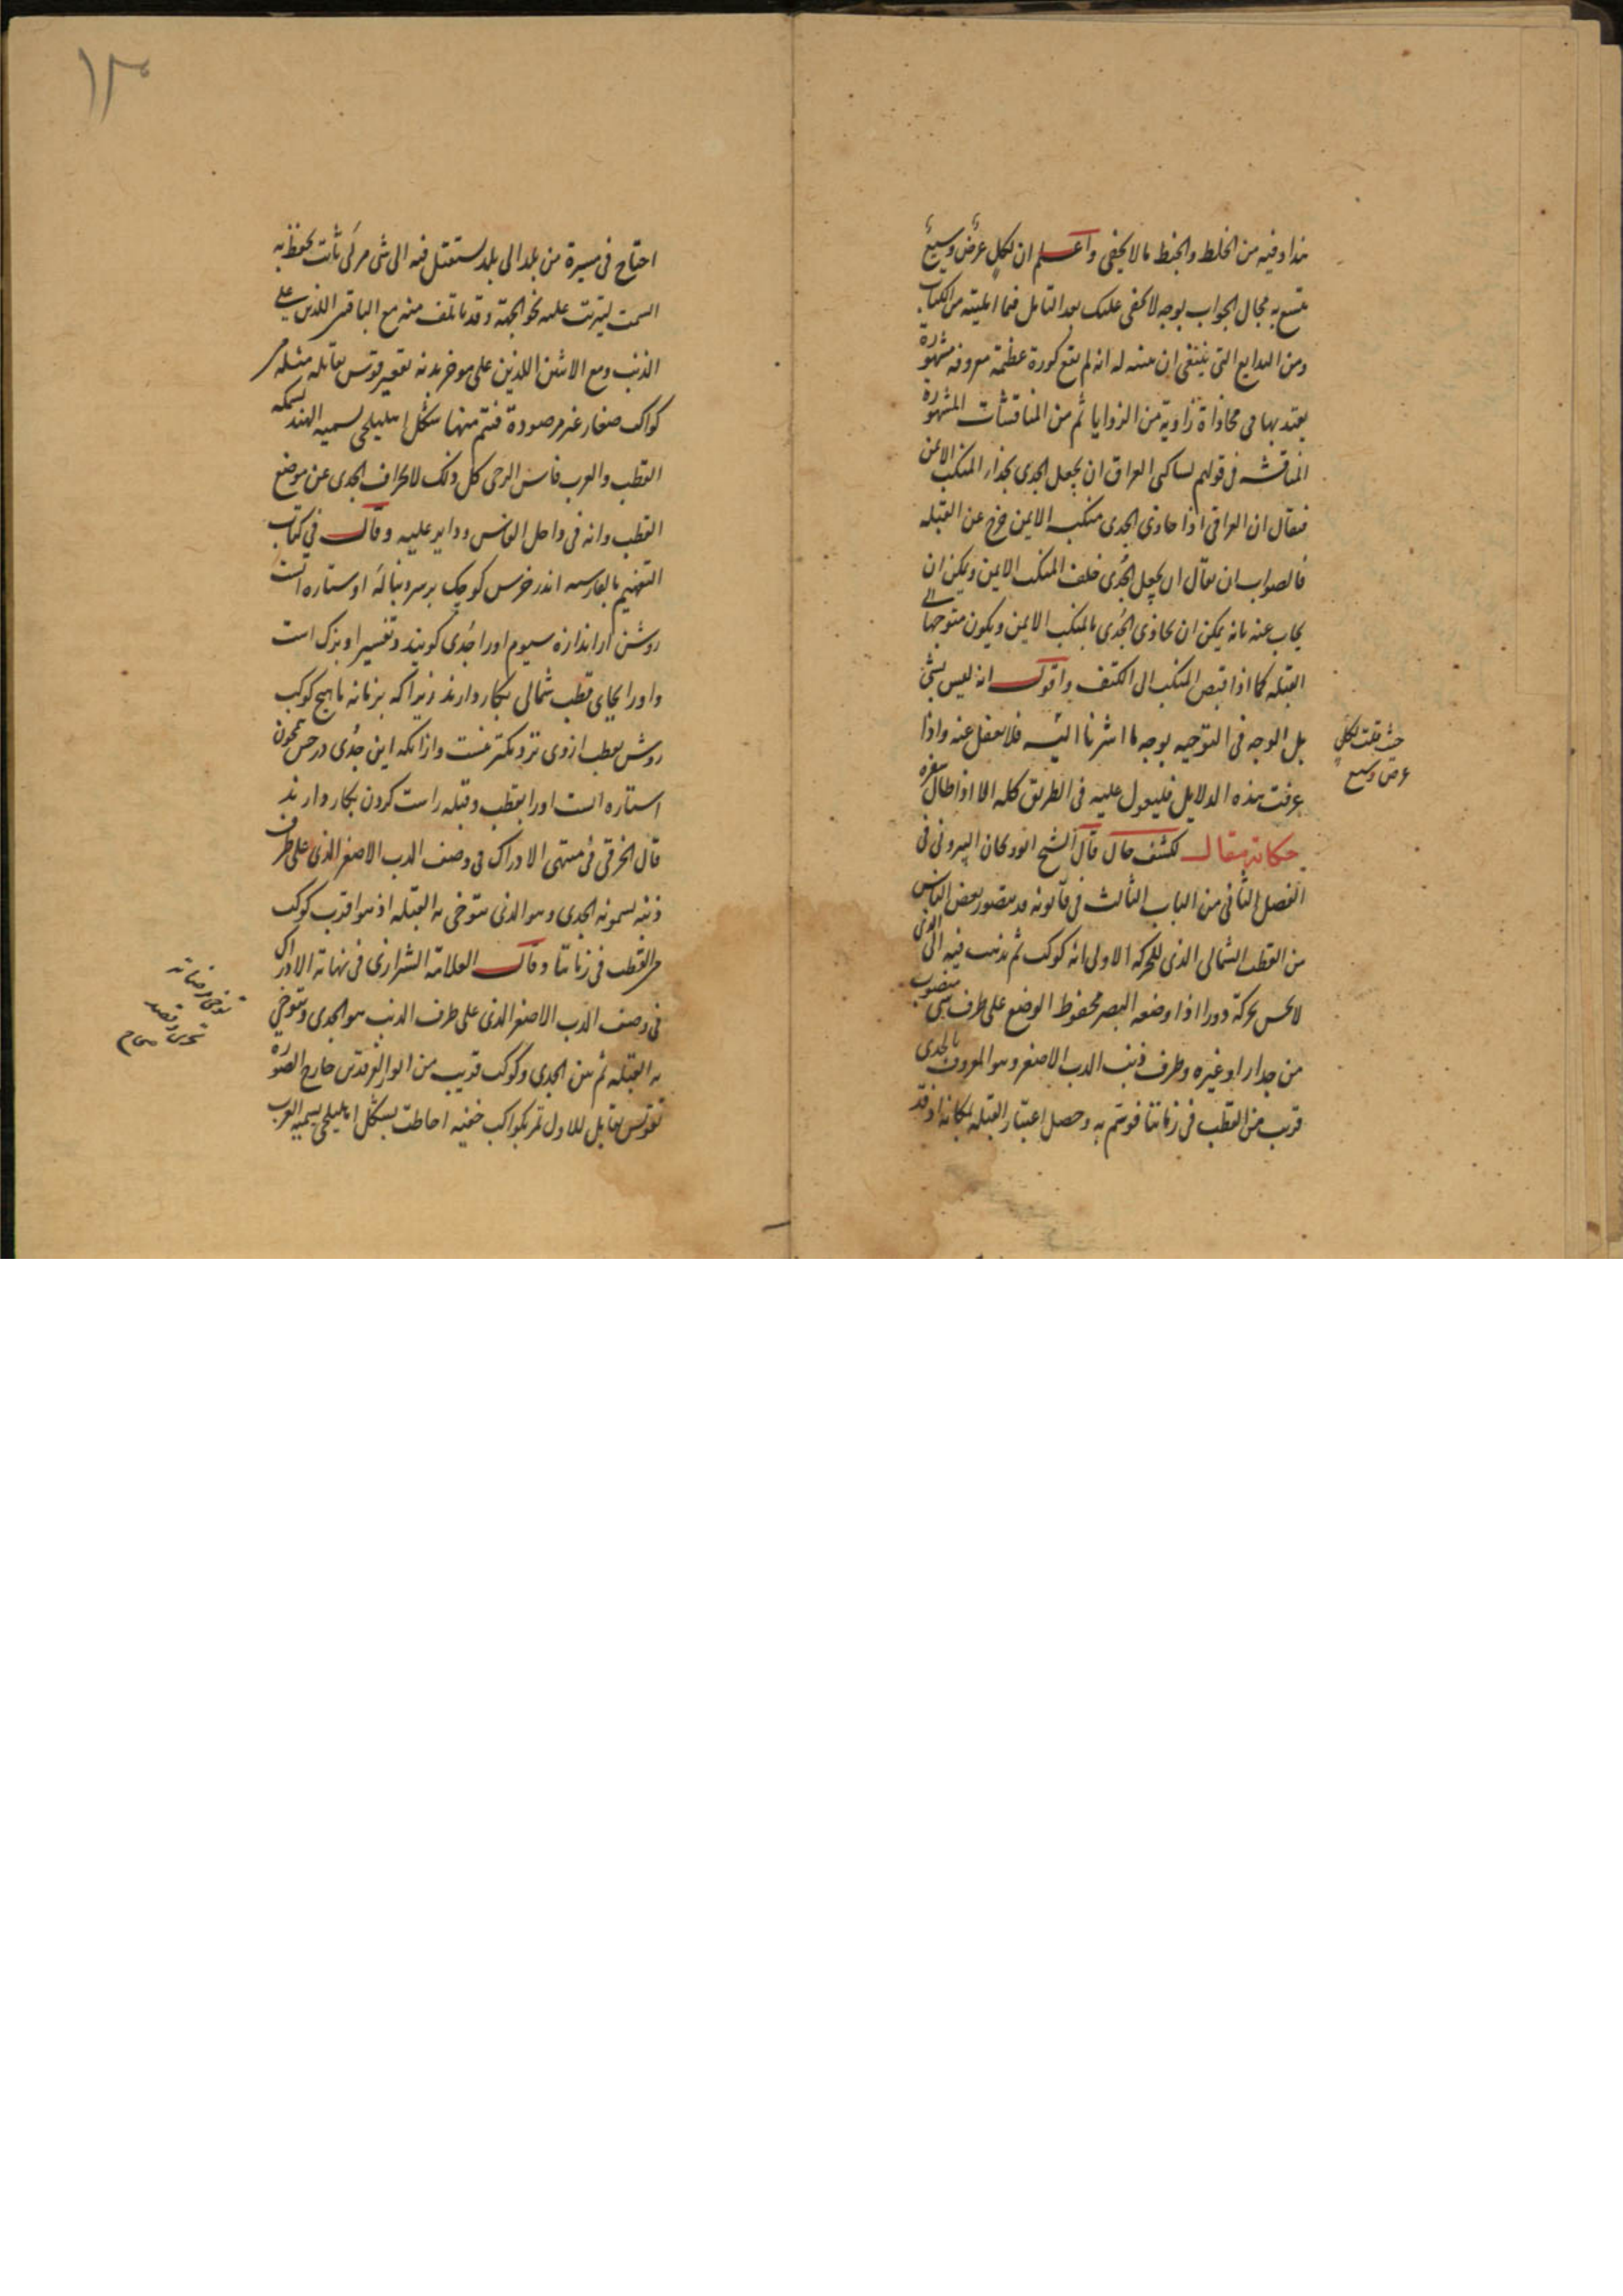 هذا وفيه من الخلط والخبط ما لا يخفى واعلم ان لكل عرض وسيع
يتسع به مجال الجواب بوجه لا يخفى عليك بعد التامل فيما امليته من الكتاب
ومن البدايع التي ينبغي ان ينبه له انه لم يقع كورة عظيمة معروفة مشهورة
يعتد بها في محاذاة زاوية من الزوايا ثم من المناقشات المشهورة
المناقشة في قولهم لساكني العراق ان يجعل الجدي بحذاء المنكب الايمن
فيقال ان العراقي اذا حاذى الجدي منكبه الايمن خرج عن القبلة
فالصواب ان يقال ان يجعل الجدي خلف المنكب الايمن ويمكن ان
يجاب عنه بانه يمكن ان يحاذي الجدي بالمنكب الايمن ويكون متوجها الى
القبلة كما اذا قبض المنكب الى الكتف واقول انه ليس بشئ
بل الوجه في التوجيه بوجه ما اشرنا اليه فلا يغفل عنه واذا
عرفت هذه الدلايل فليعول عليه في الطريق كله الا اذا طال سفره
حكاية مقال لكشف حال قال الشيخ ابو ريحان البيروني في
الفصل الثاني من الباب الثالث في قانونه قد يتصور بعض الناس
من القطب الشمالي الذي للحركة الاولى انه كوكب ثم يذهب فيه الى الذي
لا يحس بحركته دورا اذا وضعه البصر محفوظ الوضع على طرف شئ منصوب
من جدار او غيره وطرف ذنب الدب الاصغر وهو المعروف بالجدي
قريب من القطب في زماننا فوسم به وحصل اعتبار القبلة بمكانه اذ قد
حيث قلت لكل
عرض وسيع
١٣
احتاج في مسيرة من بلد الى بلد يستقبل فيه الى شئ مرئي ثابت يحفظ به
السمت ليترتب عليه نحو الجهة وقد يأتلف منه مع الباقيين اللذين على
الذنب ومع الاثنين اللذين على موخر بدنه تقعير قوس يقابله مثله من
كواكب صغار غير مرصودة فيتم منها شكل اهليلجي يسميه الهند سمكة
القطب والعرب فاس الرحى كل ذلك لانحراف الجدي عن موضع
القطب وانه في داخل الفاس ودائر عليه وقال في كتاب
التفهيم بالفارسية اندر خرس كوچك بر سر دنبالهٔ او ستاره است
روشن از اندازه سيوم او را جدي كويند وتفسير او بزك است
واو را بجاى قطب شمالى بكار دارند زيرا كه بزمانه ما هيچ كوكب
روشن بقطب ازوى نزديكتر نيست واز انكه اين جدى در حس همچون
استاره است او را بقطب وقبله راست كردن بكار دارند
قال الخرقي في منتهى الادراك في وصف الدب الاصغر الذي على طرف
ذنبه يسمونه الجدي وهو الذي يتوخى به القبلة اذ هو اقرب كوكب
من القطب في زماننا وقال العلامة الشيرازي في نهاية الادراك
في وصف الدب الاصغر الذي على طرف الذنب هو الجدي ويتوخى
به القبلة ثم بين الجدي وكوكب قريب من انور الفرقدين خارج الصورة
تقوس مقابل للاول تمر بكواكب خفية احاطت بشكل اهليلجي يسميه العرب
توخى رضاته
تحرى وقصد
صحاح